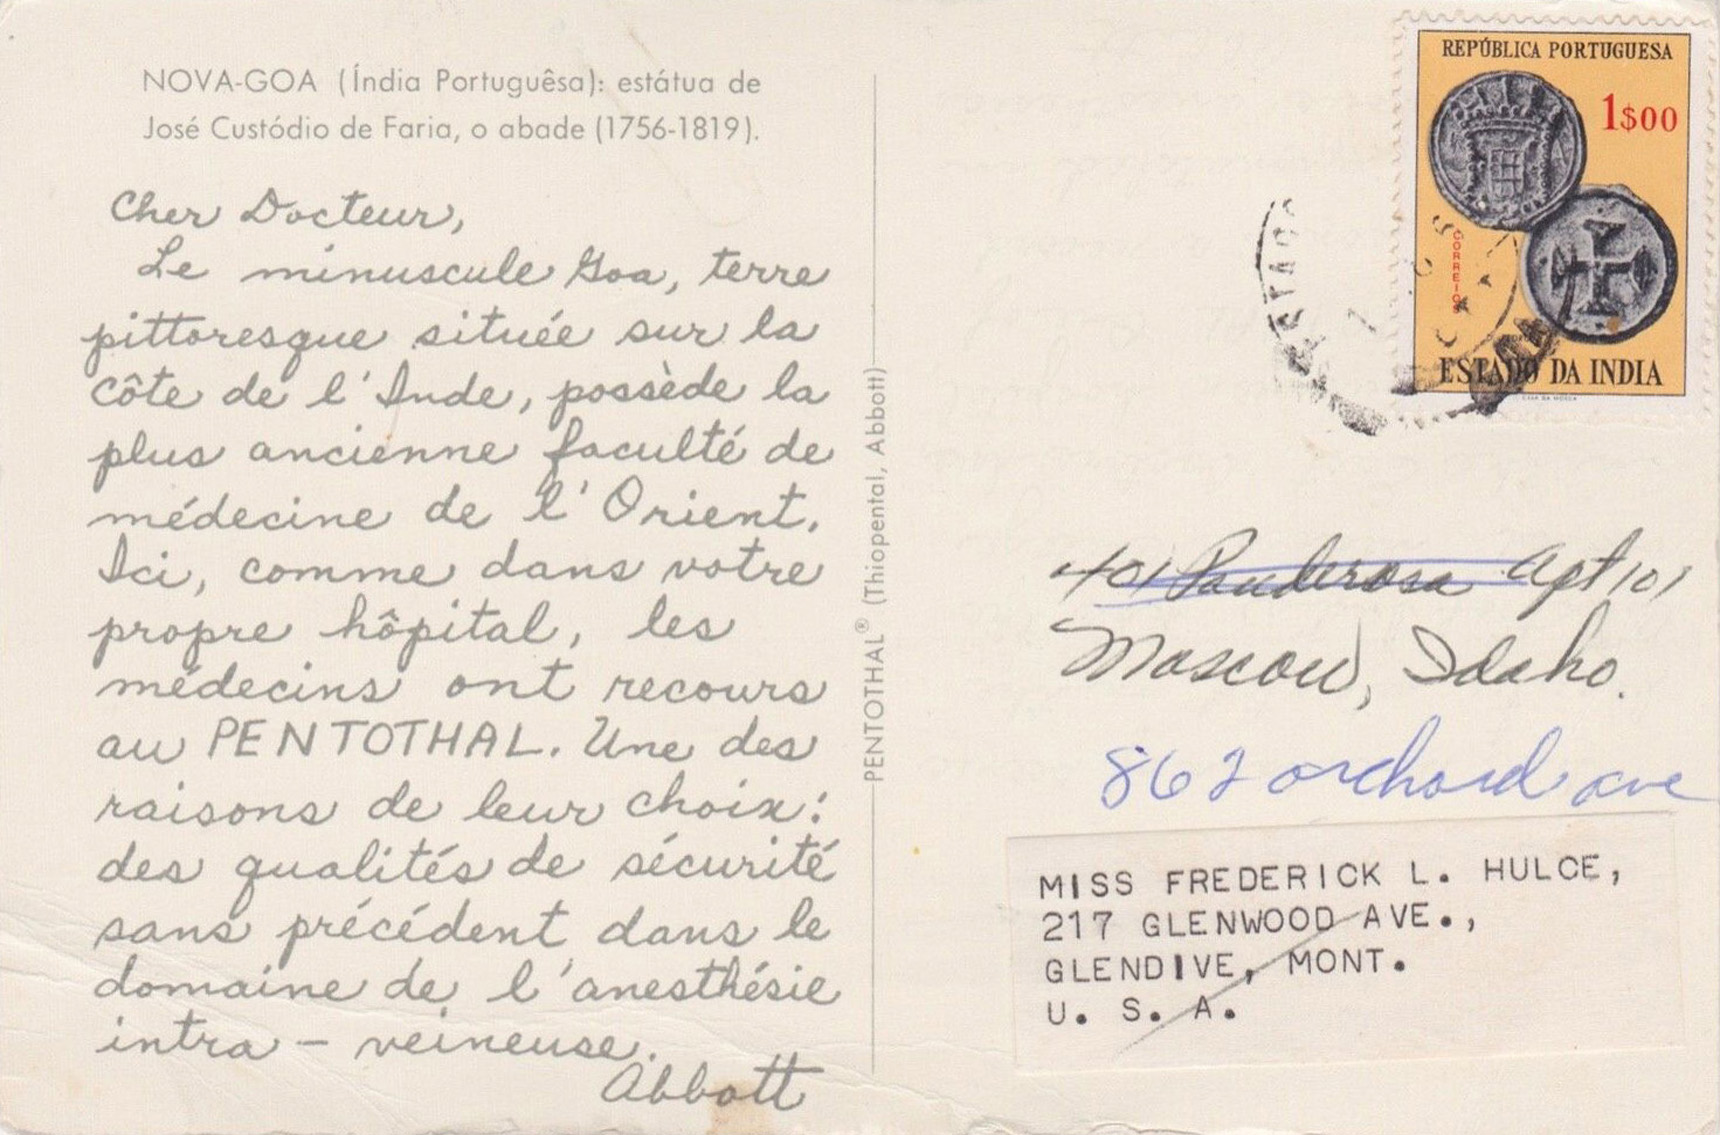 NOVA-GOA (Índia Portuguêsa): estátua de
José Custódio de Faria, o abade (1756-1819).
Cher Docteur,
Le minuscule Goa, terre
pittoresque située sur la
côte de l'Inde, possède la
plus ancienne faculté de
médecine de l'Orient.
Ici, comme dans votre
propre hôpital, les
médecins ont recours
au PENTOTHAL. Une des
raisons de leur choix:
des qualités de sécurité
sans précédent dans le
domaine de l'anesthésie
intra-veineuse.
Abbott
PENTOTHAL® (Thiopental, Abbott)
REPÚBLICA PORTUGUESA
1$00
CORREIOS
ESTADO DA INDIA
401 Panderosa Apt 101
Moscow, Idaho.
862 orchard ave
MISS FREDERICK L. HULCE,
217 GLENWOOD AVE.,
GLENDIVE, MONT.
U. S. A.